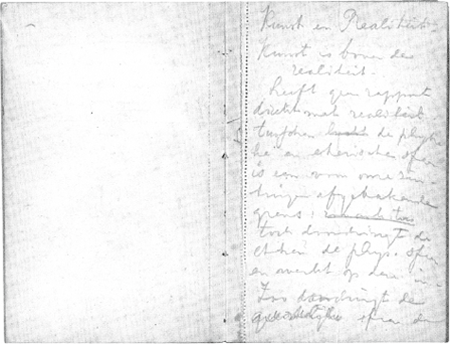 Kunst en Realiteit
Kunst is boven de
realiteit.
heeft geen rapport
direct met realiteit
tusschen de physi
ke en etherische sfeer
is een voor onze zin
tuigen afgebakende
grens;
toch doordringt de
etheri. de phys. sfeer
en werkt op deze in
Zoo doordringt de
geestelijke sferen de